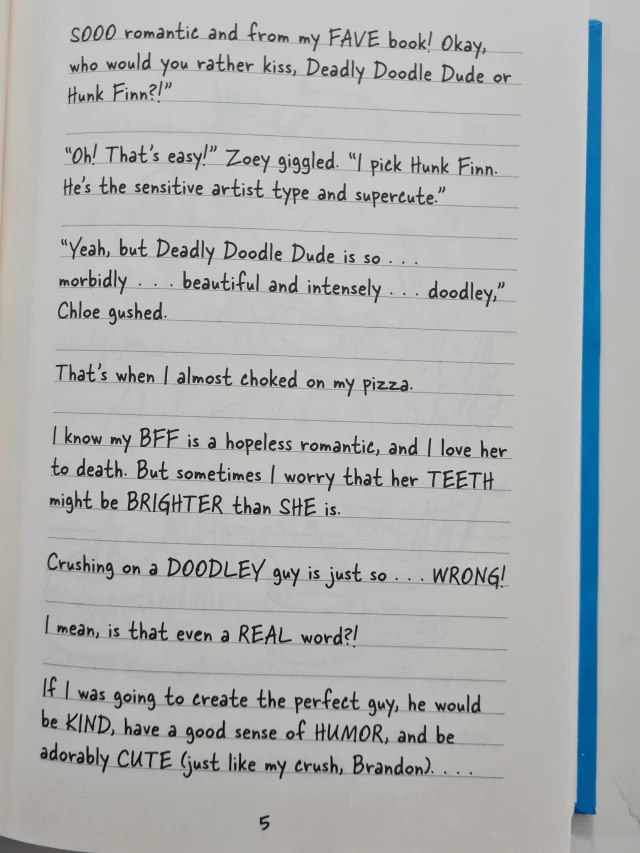 SOOO romantic and from my FAVE book! Okay,
who would you rather kiss, Deadly Doodle Dude or
Hunk Finn?!”
“Oh! That’s easy!” Zoey giggled. “I pick Hunk Finn.
He’s the sensitive artist type and supercute.”
“Yeah, but Deadly Doodle Dude is so . . .
morbidly . . . beautiful and intensely . . . doodley,”
Chloe gushed.
That’s when I almost choked on my pizza.
I know my BFF is a hopeless romantic, and I love her
to death. But sometimes I worry that her TEETH
might be BRIGHTER than SHE is.
Crushing on a DOODLEY guy is just so . . . WRONG!
I mean, is that even a REAL word?!
If I was going to create the perfect guy, he would
be KIND, have a good sense of HUMOR, and be
adorably CUTE (just like my crush, Brandon). . . .
5